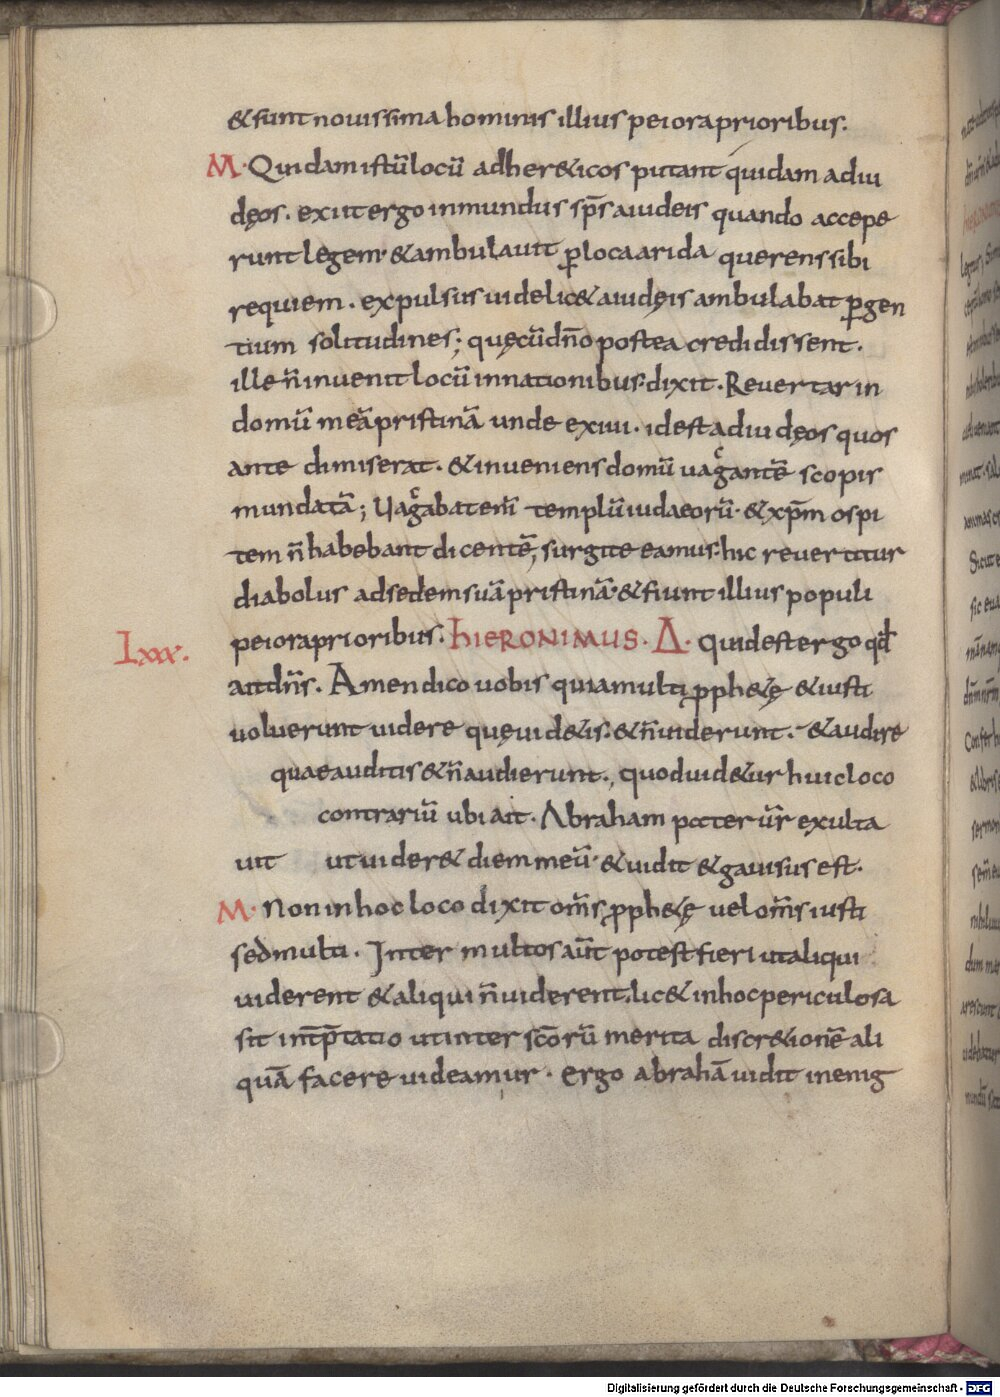 & sunt nouissima hominis illius peiora prioribus.
M. Quidam istū locū ad her&icos putant quidam ad iu
dęos. exiit ergo inmundus sp̄s a iudeis quando accepe
runt legem. & ambulauit ꝑ loca arida querens sibi
requiem. expulsus uidelic& a iudęis ambulabat ꝑ gen
tium solitudines; quę cū dn̄o postea credidissent.
ille n̄ inuenit locū in nationibus. dixit. Reuertar in
domū meā pristinā unde exiui. id est ad iudęos quos
ante dimiserat. & inueniens domū uagantē scopis
mundatā; Uagabat enī templū iudaeorū. & xp̄m ospi
tem n̄ habebant dicentē, surgite eamus. hic reuertitur
diabolus ad sedem suā pristinā. & fiunt illius populi
Lxxx.
peiora prioribus. hIERONIMUS. Δ. Quid est ergo qđ
ait dn̄s. Amen dico uobis quia multi ꝓph&ę & iusti
uoluerunt uidere quę uid&is. & n̄ uiderunt. & audire
quae auditis & n̄ audierunt., quod uid&ur huic loco
contrariū ubi ait. Abraham pater ur̄ exulta
uit ut uider& diem meū. & uidit & gauisus est.
M. Non in hoc loco dixit om̄s ꝓph&ę uel om̄s iusti
sed multi. Inter multos aut̄ potest fieri ut aliqui
uiderent & aliqui n̄ uiderent. lic& in hoc periculosa
sit int̄p̄tatio ut inter sc̄orū merita discr&ionē ali
quā facere uideamur. Ergo abrahā uidit in enig
Digitalisierung gefördert durch die Deutsche Forschungsgemeinschaft - DFG